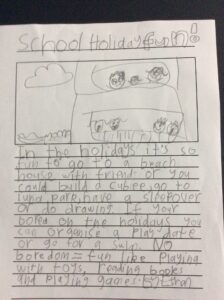 School Holiday fun!
In the holidays it's so
fun to go to a beach
house with friend or you
could build a cubee, go to
luna park, have a sleepover
or do drawing If your
bored on the holidays you
can organise a play date
or go for a swim. No
boredom = fun like playing
with toys, reading books
and playing games.